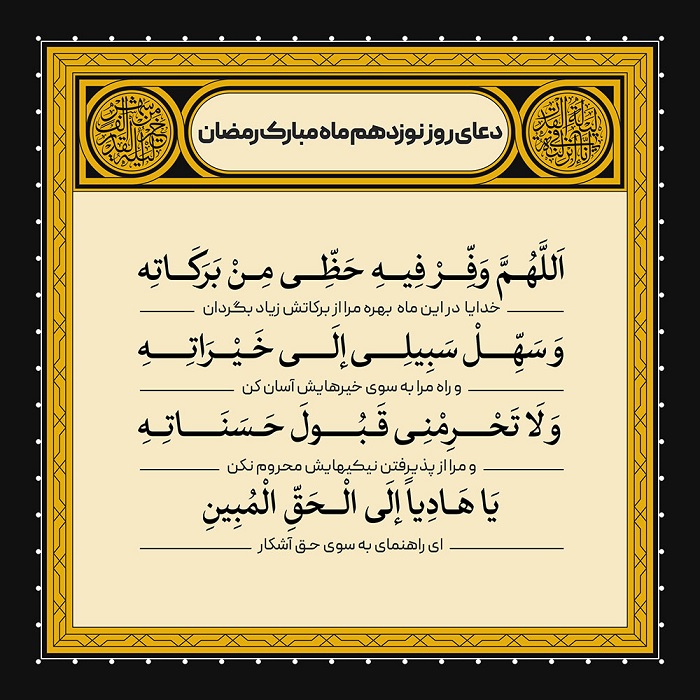 دعای روز نوزدهم ماه مبارک رمضان
اَللَّهُمَّ وَفِّرْ فِيهِ حَظِّي مِنْ بَرَكَاتِهِ
خدایا در این ماه بهره مرا از برکاتش زیاد بگردان
وَ سَهِّلْ سَبِيلِي إِلَى خَيْرَاتِهِ
و راه مرا به سوی خیرهایش آسان کن
وَ لَا تَحْرِمْنِي قَبُولَ حَسَنَاتِهِ
و مرا از پذیرفتن نیکیهایش محروم نکن
يَا هَادِياً إِلَى الْحَقِّ الْمُبِينِ
ای راهنمای به سوی حق آشکار